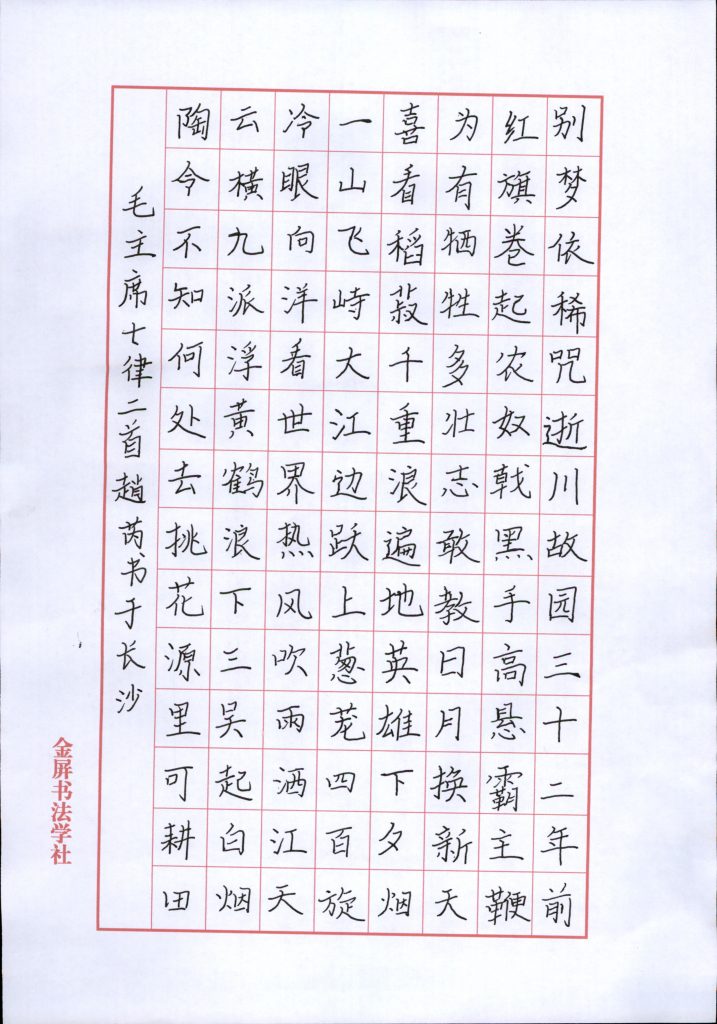 别梦依稀咒逝川故园三十二年前
红旗卷起农奴戟黑手高悬霸主鞭
为有牺牲多壮志敢教日月换新天
喜看稻菽千重浪遍地英雄下夕烟
一山飞峙大江边跃上葱茏四百旋
冷眼向洋看世界热风吹雨洒江天
云横九派浮黄鹤浪下三吴起白烟
陶令不知何处去桃花源里可耕田
毛主席七律二首趙芮书于长沙
金屏书法学社